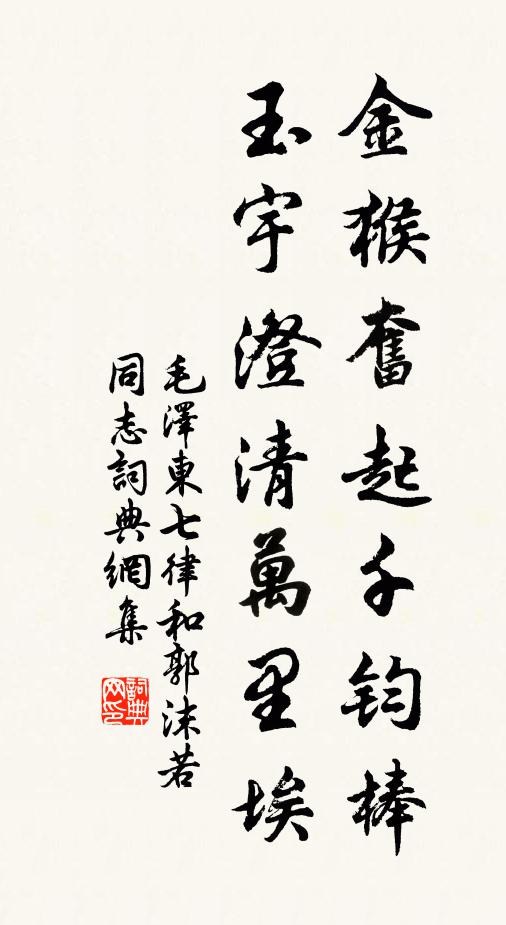 金猴奮起千鈞棒
玉宇澄清萬里埃
毛澤東七律和郭沫若
同志詞典網集
詞典网印